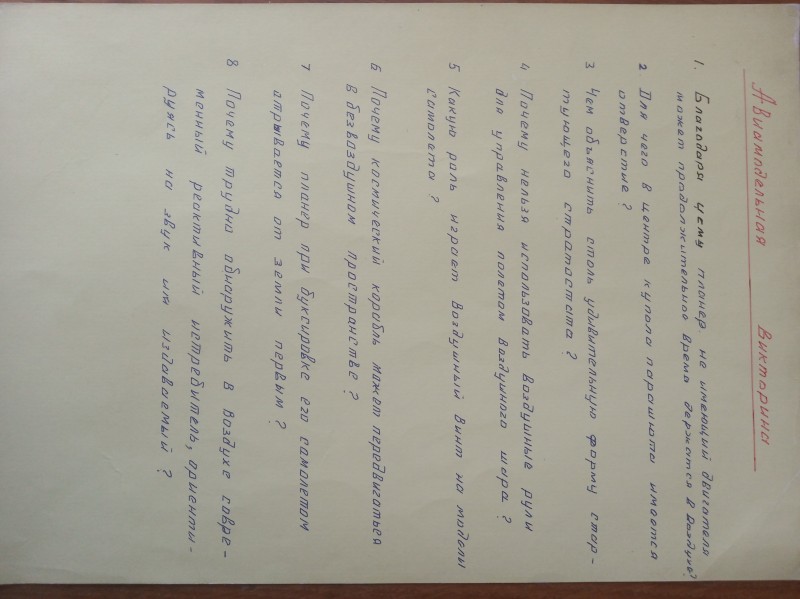 Авиамодельная Викторина
1. Благодаря чему планер не имеющий двигателя
может продолжительное время держатся в воздухе?
2 Для чего в центре купола парашюта имеется
отверстие?
3 Чем объяснить столь удивительную форму стар-
тующего стратостата?
4 Почему нельзя использовать воздушные рули
для управления полетом воздушного шара?
5 Какую роль играет воздушный винт на модели
самолета?
6 Почему космический корабль может передвигаться
в безвоздушном пространстве?
7 Почему планер при буксировке его самолетом
отрывается от земли первым?
8 Почему трудно обнаружить в воздухе совре-
менный реактивный истребитель, ориенти-
руясь на звук им издаваемый?